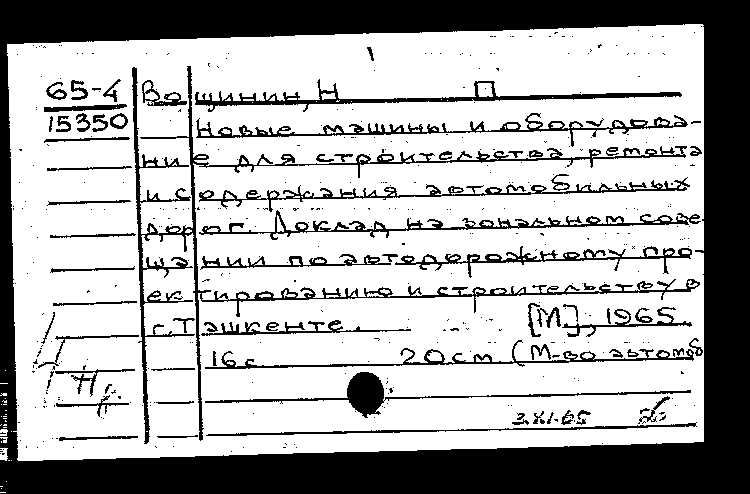 65-4 Вощинин, Н
15350 Новые машины и оборудова-
ние для строительства, ремонта
и содержания автомобильных
дорог. Доклад на зональном сове-
щании по автодорожному про-
ектированию и строительству в
г. Ташкенте. [М], 1965
16 с 20 см (М-во автомоб
3.XI.65